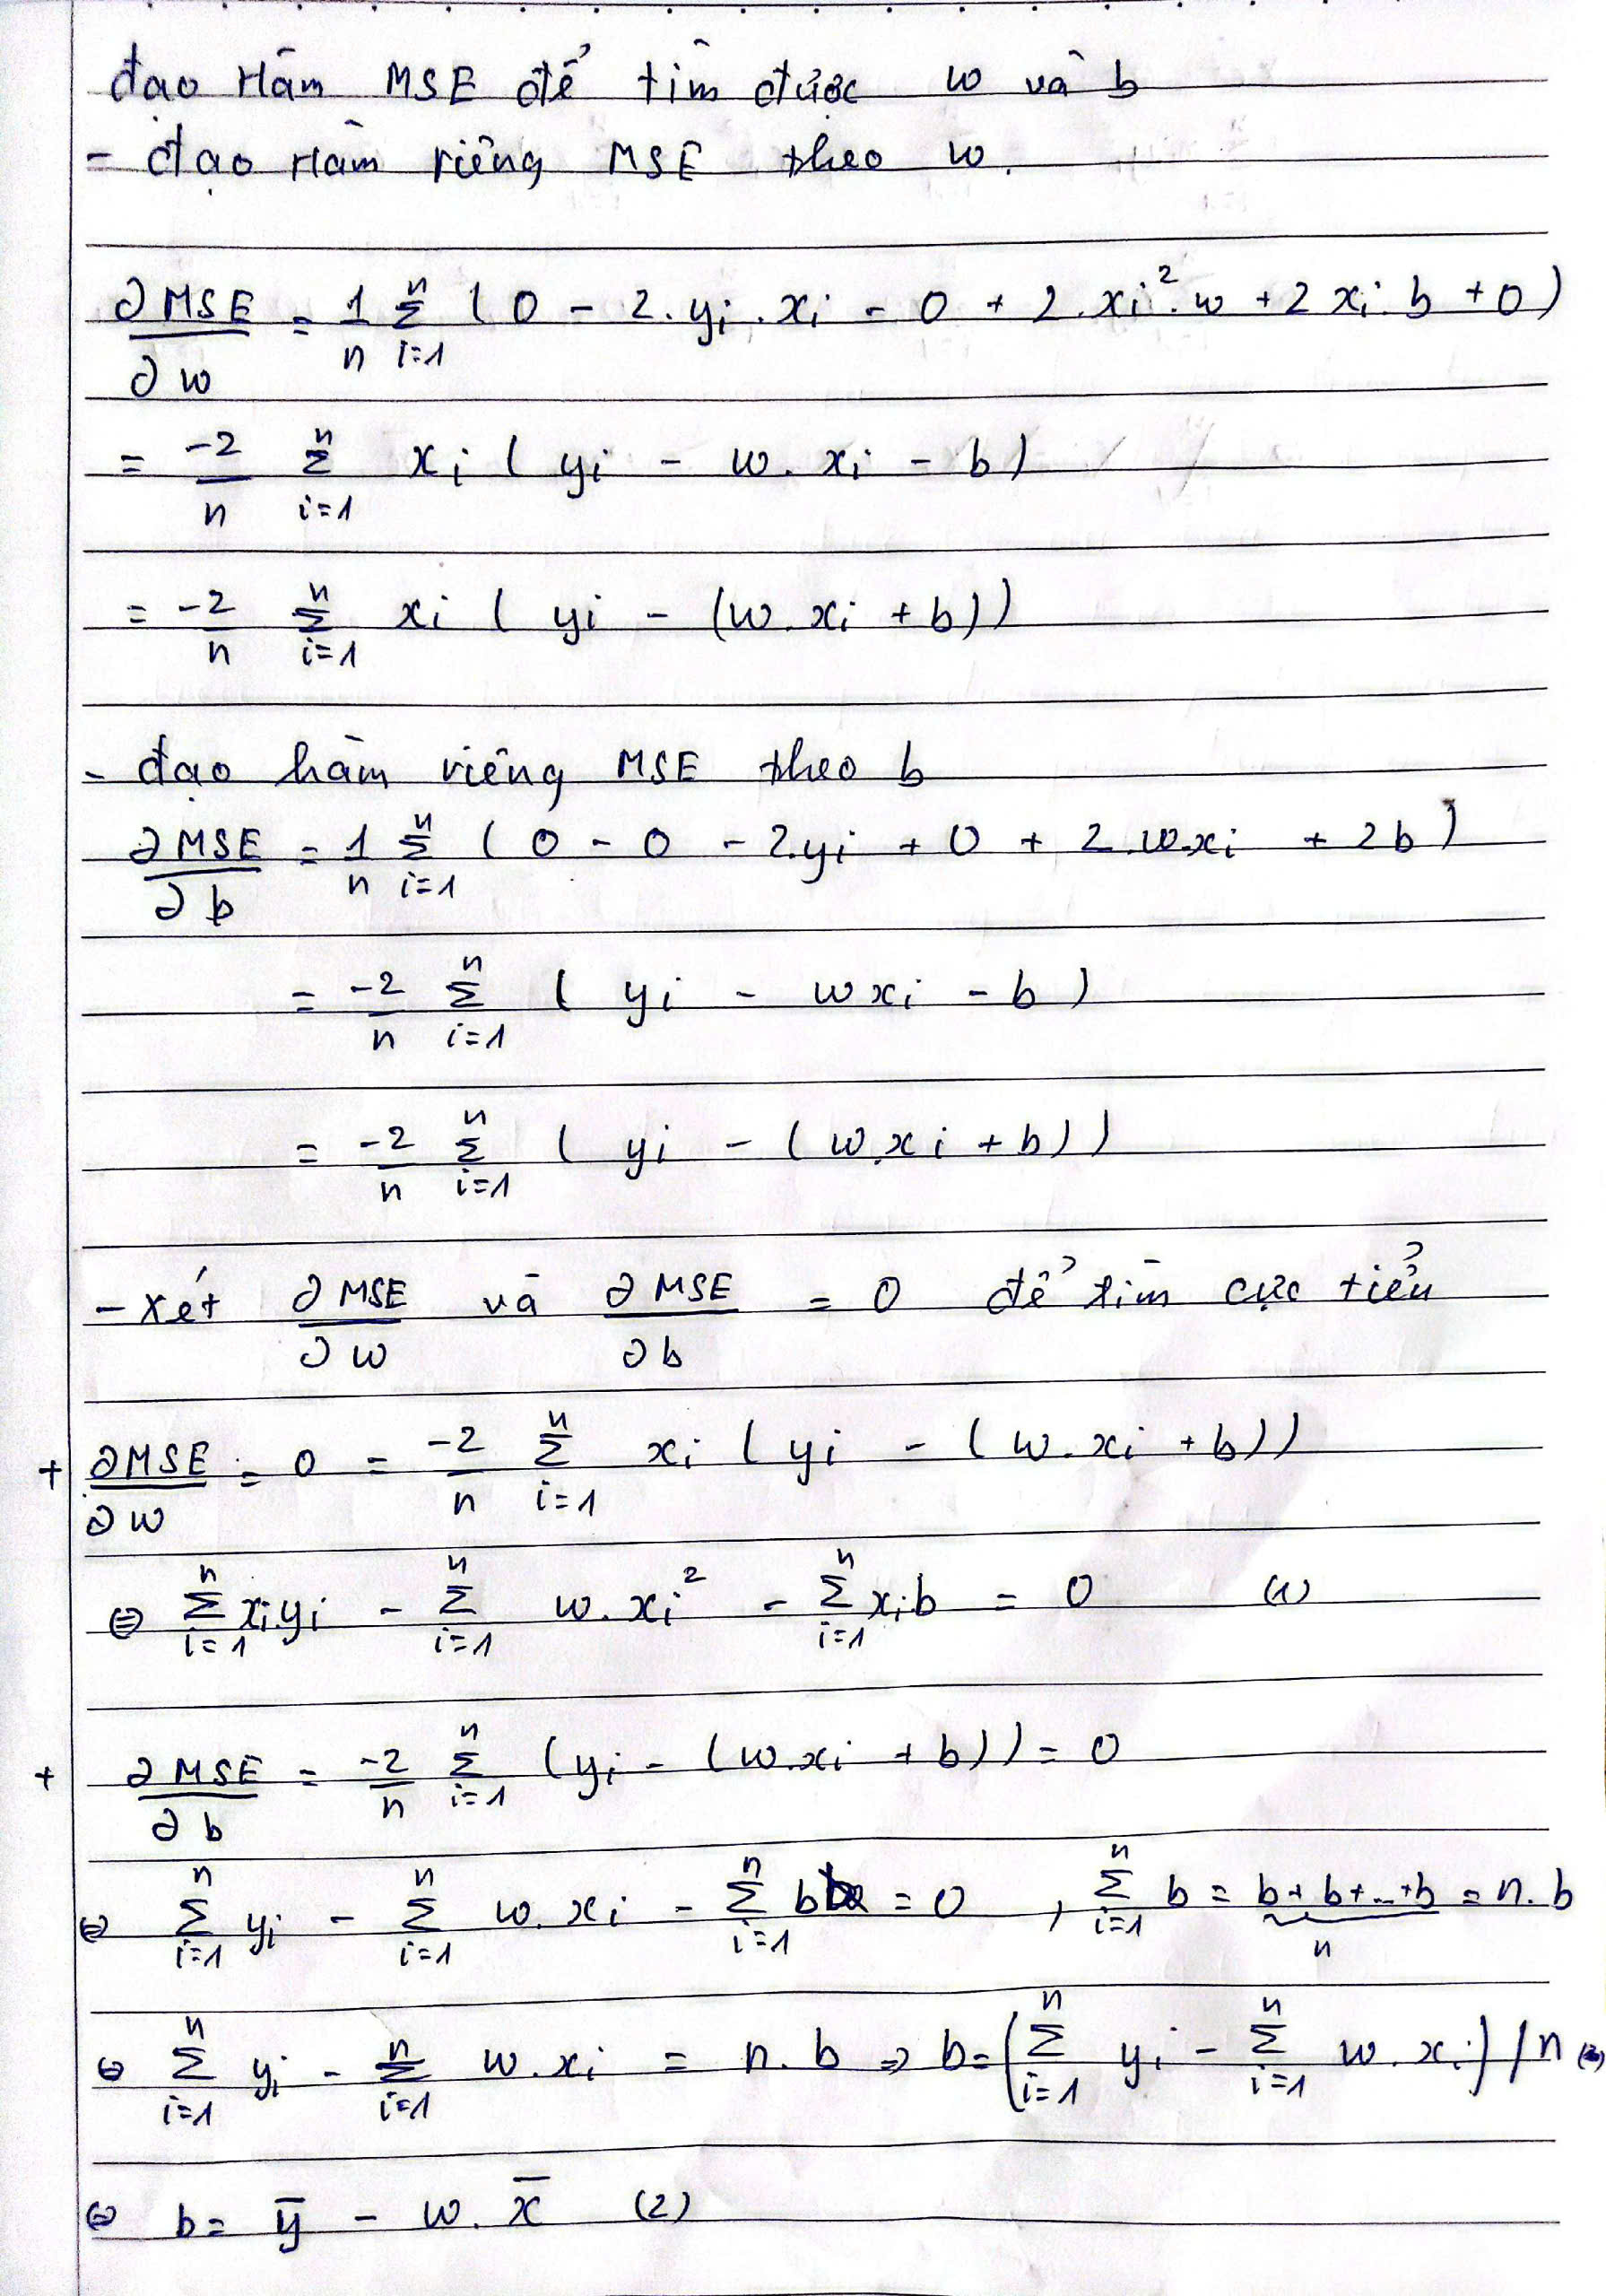 đạo hàm MSE để tìm được w và b
- đạo hàm riêng MSE theo w.
∂MSE/∂w = 1/n Σ_{i=1}^{n} (0 - 2.yi.xi - 0 + 2.xi².w + 2xi.b + 0)
= -2/n Σ_{i=1}^{n} xi(yi - w.xi - b)
= -2/n Σ_{i=1}^{n} xi(yi - (w.xi + b))
- đạo hàm riêng MSE theo b
∂MSE/∂b = 1/n Σ_{i=1}^{n} (0 - 0 - 2.yi + 0 + 2.w.xi + 2b)
= -2/n Σ_{i=1}^{n} (yi - wxi - b)
= -2/n Σ_{i=1}^{n} (yi - (w.xi + b))
- xét ∂MSE/∂w và ∂MSE/∂b = 0 để tìm cực tiểu
+ ∂MSE/∂w = 0 = -2/n Σ_{i=1}^{n} xi(yi - (w.xi + b))
⇔ Σ_{i=1}^{n} xi.yi - Σ_{i=1}^{n} w.xi² - Σ_{i=1}^{n} xi.b = 0 (1)
+ ∂MSE/∂b = -2/n Σ_{i=1}^{n} (yi - (w.xi + b)) = 0
⇔ Σ_{i=1}^{n} yi - Σ_{i=1}^{n} w.xi - Σ_{i=1}^{n} b = 0 , Σ_{i=1}^{n} b = b+b+...+b = n.b
n
⇔ Σ_{i=1}^{n} yi - Σ_{i=1}^{n} w.xi = n.b ⇒ b = (Σ_{i=1}^{n} yi - Σ_{i=1}^{n} w.xi) / n
⇔ b = y̅ - w.x̅ (2)